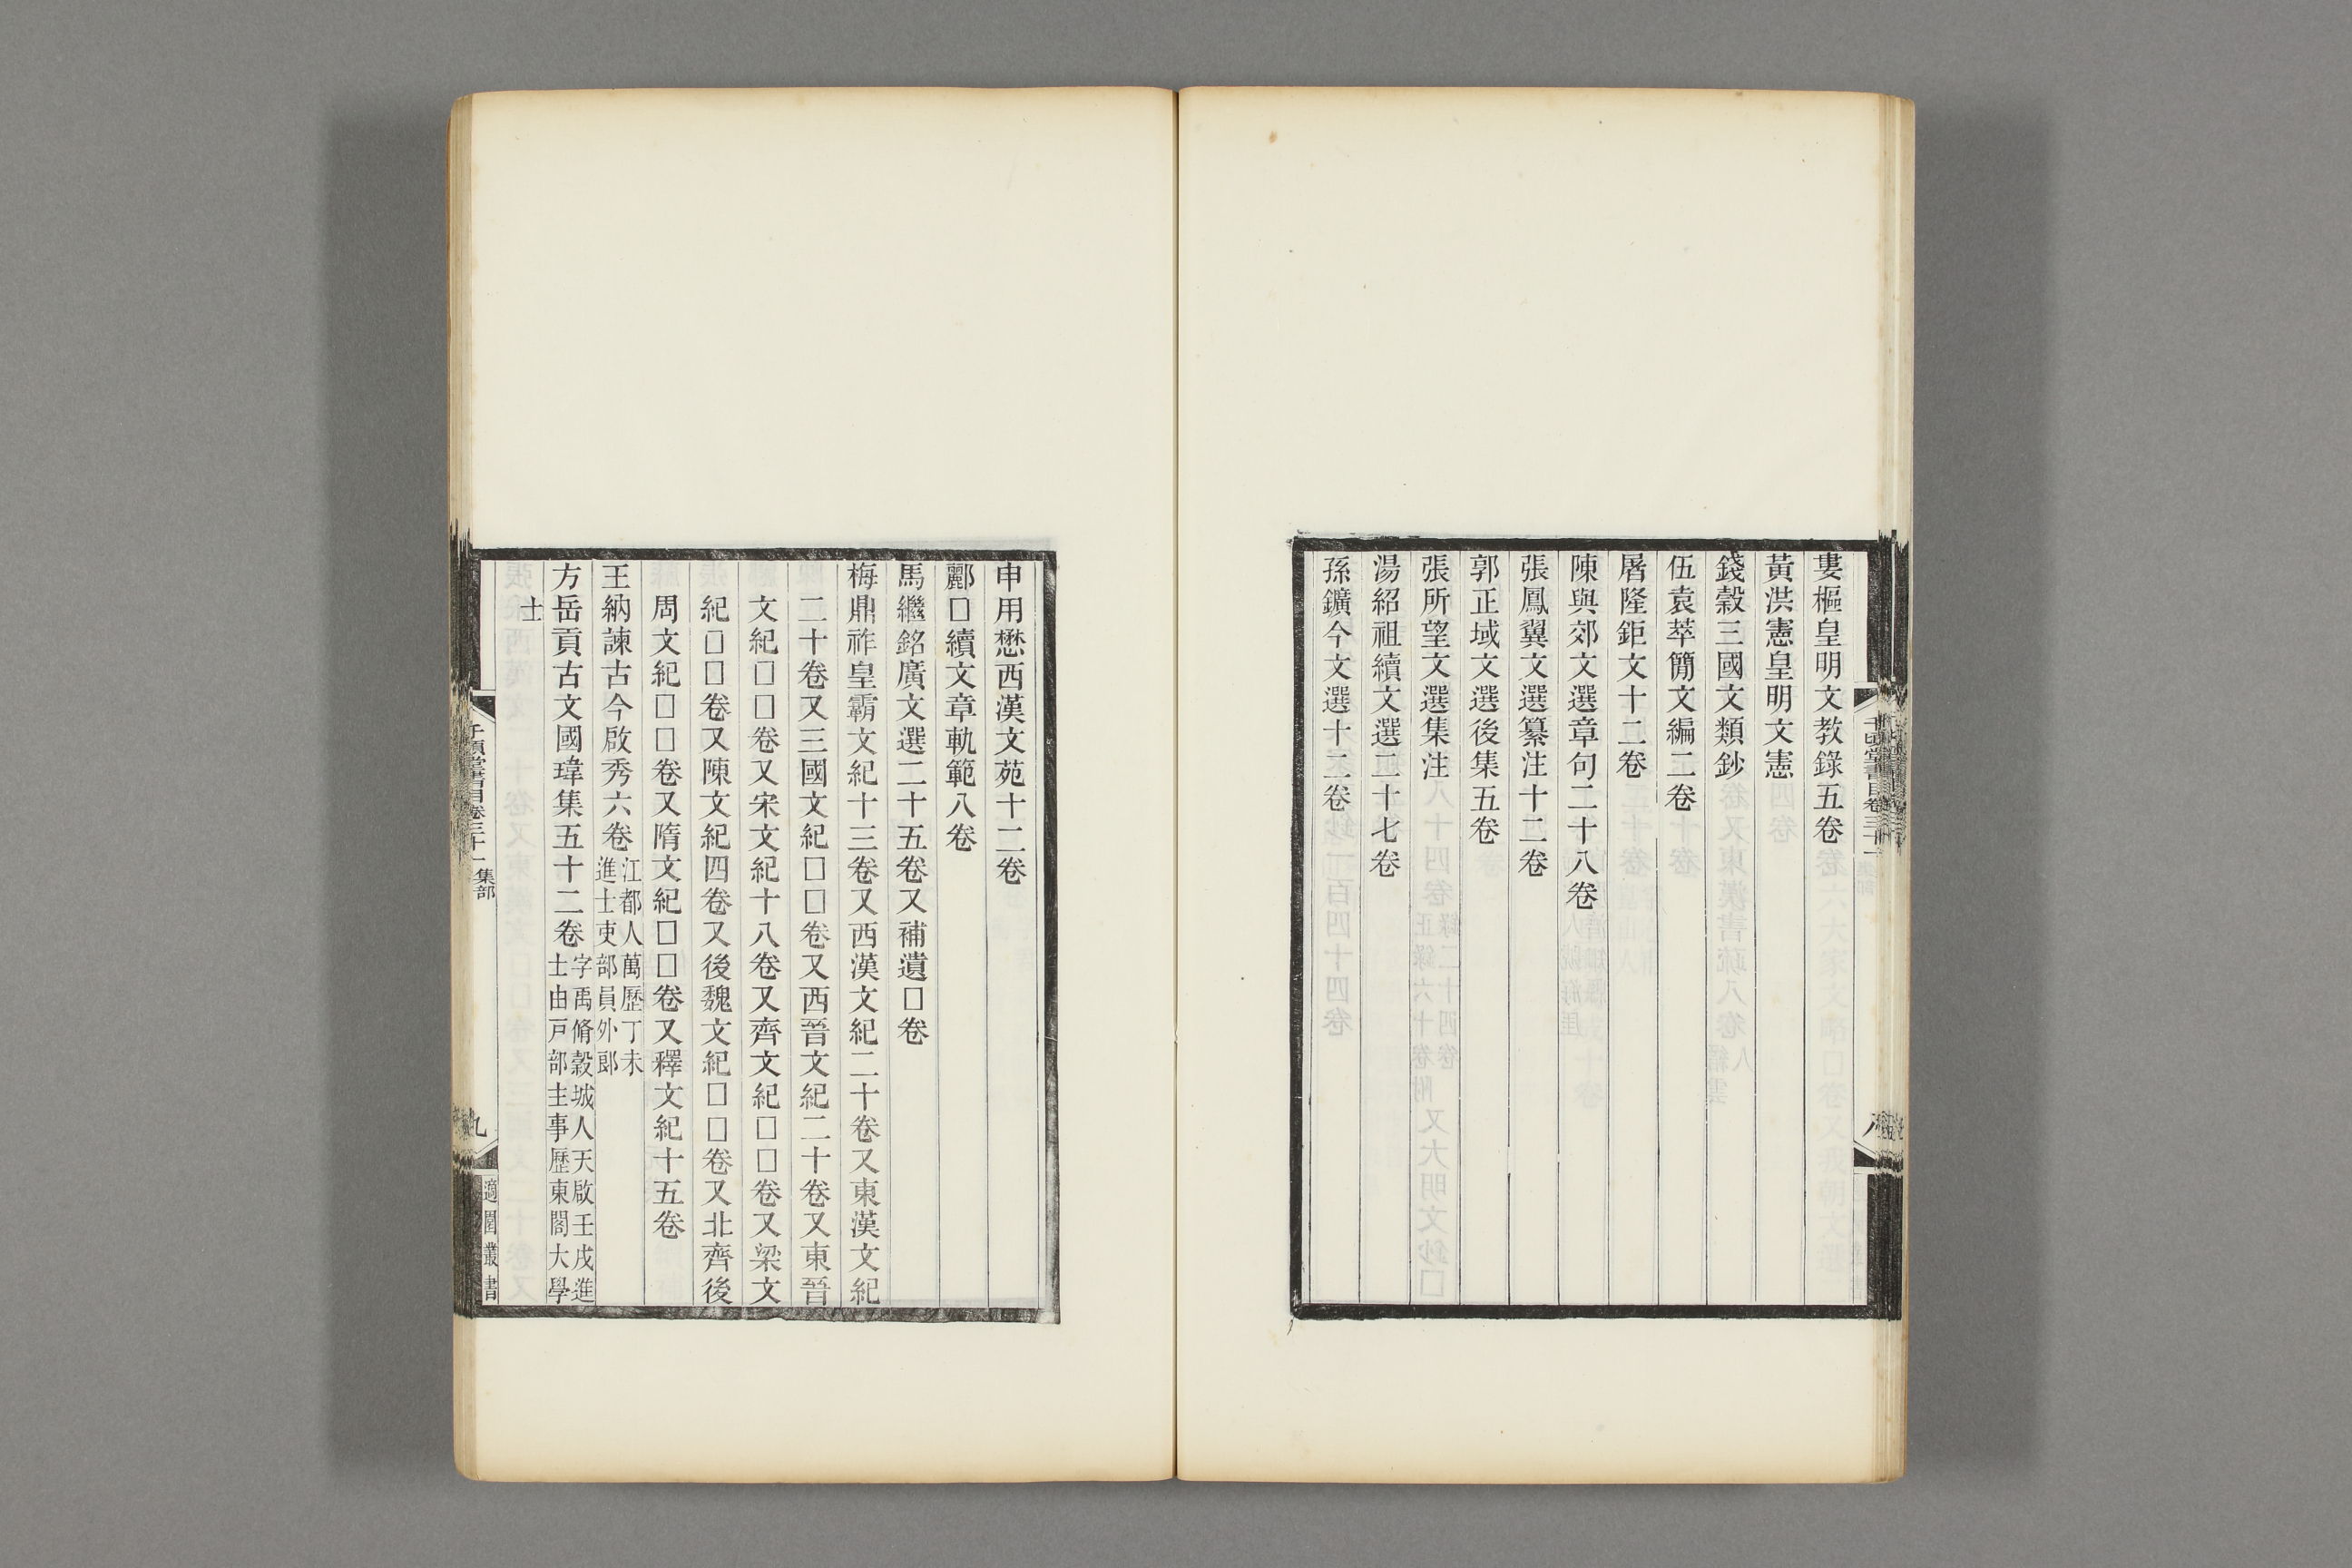 婁樞皇明文教錄五卷
黃洪憲皇明文憲
錢穀三國文類鈔
伍袁萃簡文編二卷
屠隆鉅文十二卷
陳與郊文選章句二十八卷
張鳳翼文選纂注十二卷
郭正域文選後集五卷
張所望文選集注
湯紹祖續文選二十七卷
孫鑛今文選十二卷
申用懋西漢文苑十二卷
酈□續文章軌範八卷
馬繼銘廣文選二十五卷又補遺□卷
梅鼎祚皇霸文紀十三卷又西漢文紀二十卷又東漢文紀
二十卷又三國文紀□□卷又西晉文紀二十卷又東晉
文紀□□卷又宋文紀十八卷又齊文紀□□卷又梁文
紀□□卷又陳文紀四卷又後魏文紀□□卷又北齊後
周文紀□□卷又隋文紀□□卷又釋文紀十五卷
王納諫古今啟秀六卷江都人萬歷丁未
進士吏部員外郎
方岳貢古文國瑋集五十二卷字禹脩穀城人天啟壬戌進
士由戶部主事歷東閣大學
士
千頃堂書目卷三十一 集部
九
適園叢書